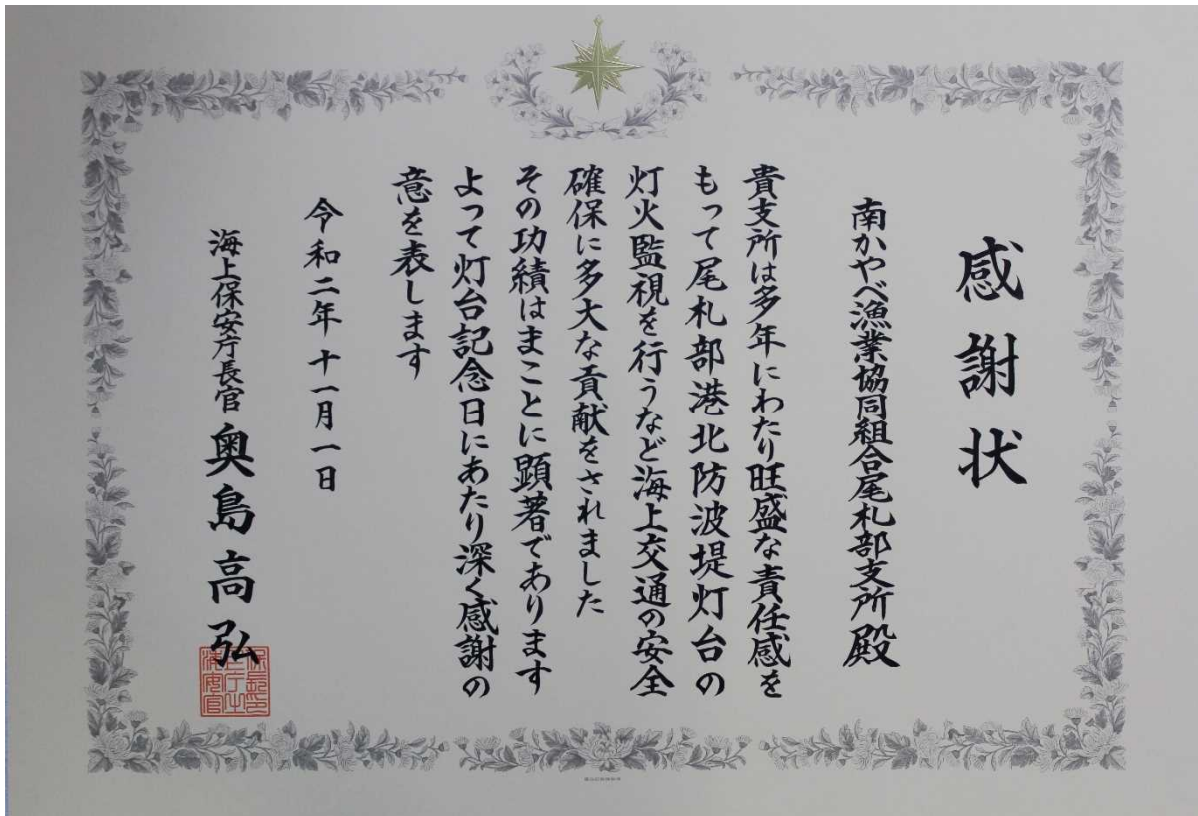 感謝状
南かやべ漁業協同組合尾札部支所殿
貴支所は多年にわたり旺盛な責任感を
もって尾札部港北防波堤灯台の
灯火監視を行うなど海上交通の安全
確保に多大な貢献をされました
その功績はまことに顕著であります
よって灯台記念日にあたり深く感謝の
意を表します
令和二年十一月一日
海上保安庁長官 奥島高弘